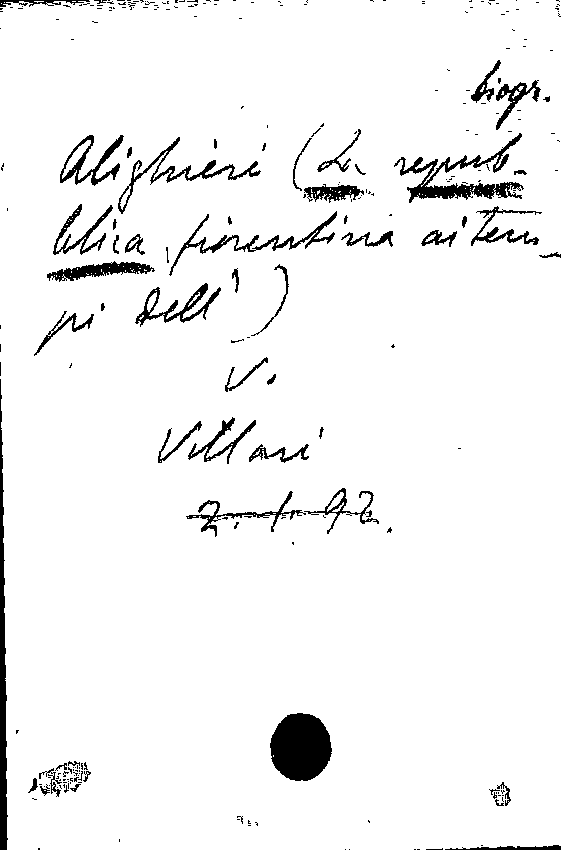 biogr.
Alighieri (La repub-
blica fiorentina ai tem-
pi dell')
V.
Villari
2. 1. 92.